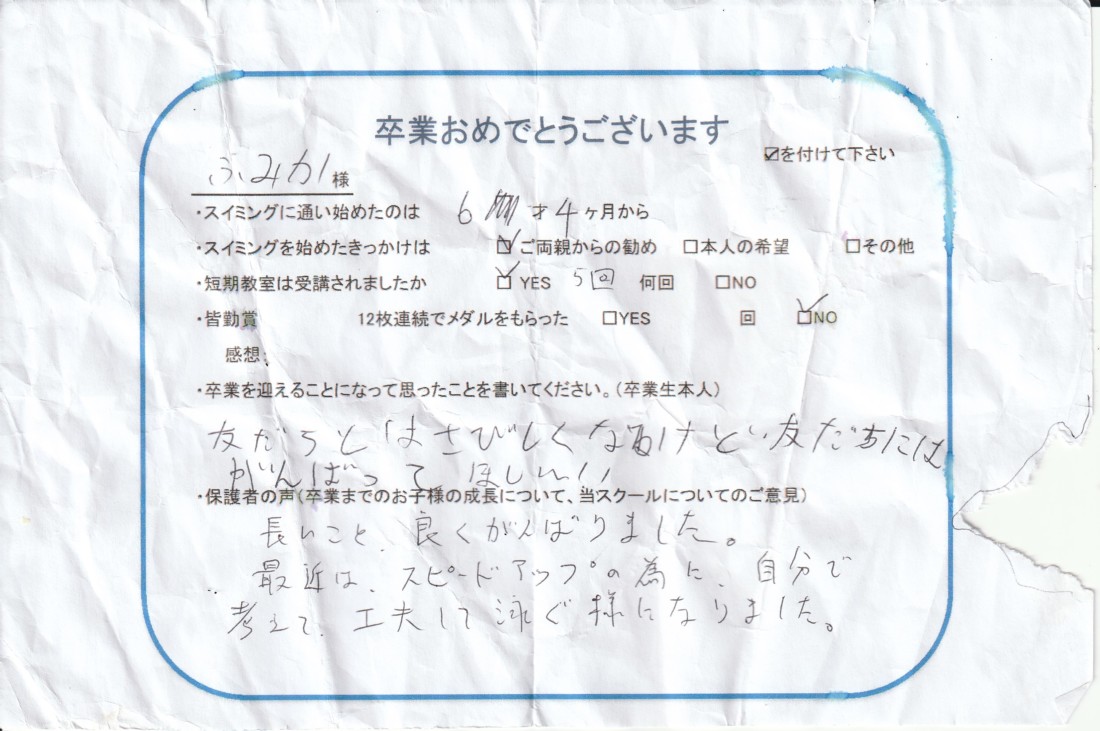 卒業おめでとうございます
☑を付けて下さい
ふみか様
・スイミングに通い始めたのは 6 才4ヶ月から
・スイミングを始めたきっかけは ☑ご両親からの勧め □本人の希望 □その他
・短期教室は受講されましたか ☑YES 5回 何回 □NO
・皆勤賞 12枚連続でメダルをもらった □YES 回 ☑NO
感想:
・卒業を迎えることになって思ったことを書いてください。(卒業生本人)
友だちとはさびしくなるけど、友だちには
がんばってほしい
・保護者の声(卒業までのお子様の成長について、当スクールについてのご意見)
長いこと、良くがんばりました。
最近は、スピードアップの為に、自分で
考えて、工夫して泳ぐ様になりました。